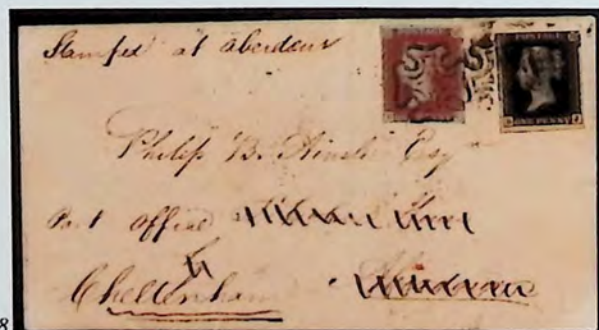 Stamped at Aberdeen
POSTAGE
ONE PENNY
Philip B. Ainslie Esq
Post Office
Cheltenham
8